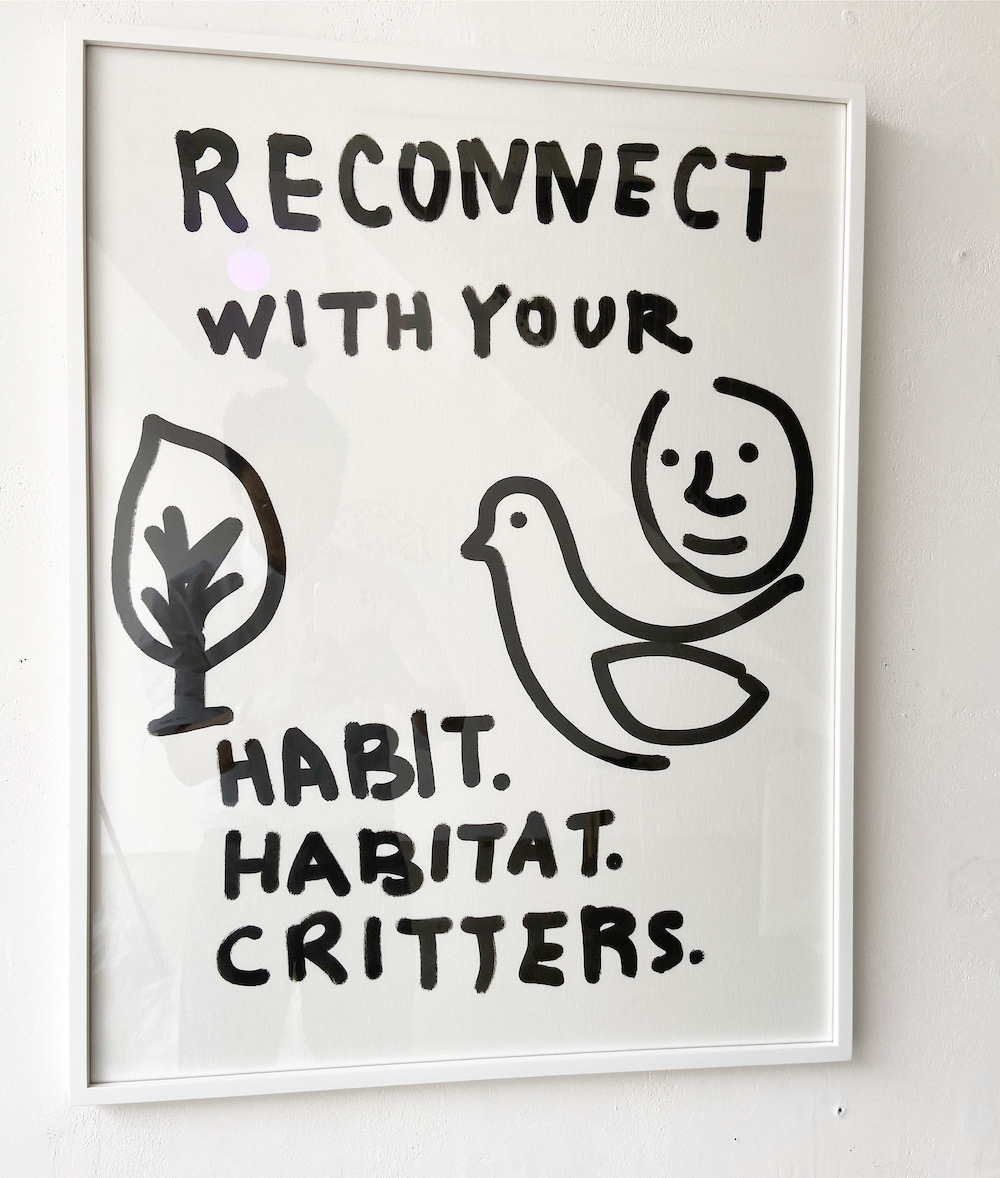 RECONNECT
WITH YOUR
HABIT.
HABITAT.
CRITTERS.